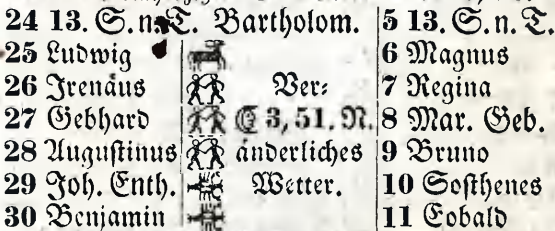 24 13. S. n. T. Bartholom. 5 13. S. n. T.
25 Ludwig 6 Magnus
26 Irenäus Ver- 7 Regina
27 Gebhard ☾ 3, 51. N. 8 Mar. Geb.
28 Augustinus änderliches 9 Bruno
29 Joh. Enth. Wetter. 10 Sosthenes
30 Benjamin 11 Eobald